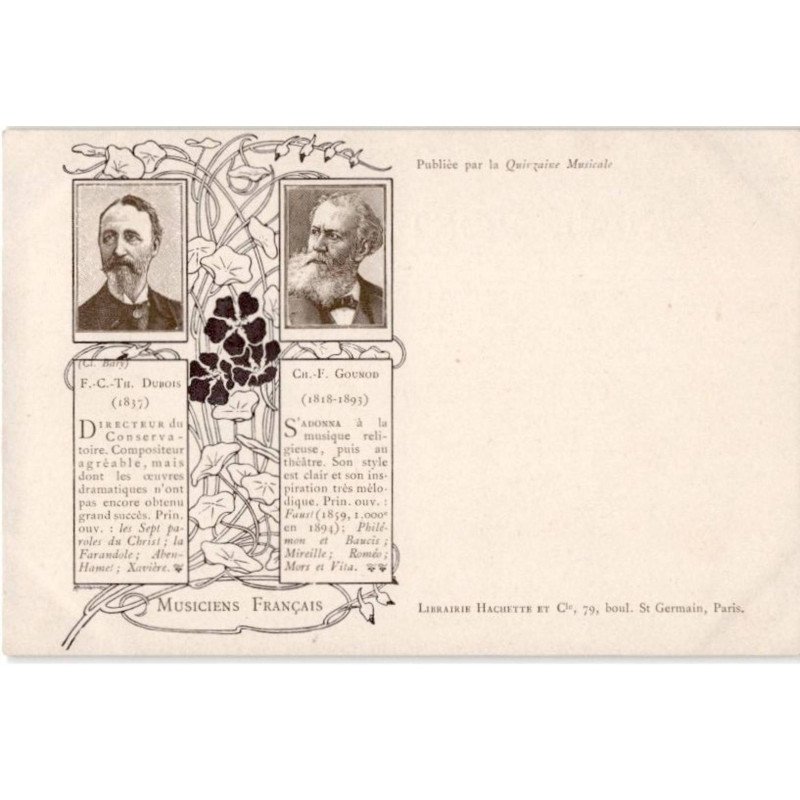 Publiée par la Quinzaine Musicale
(Cl. Bary)
F.-C.-Th. Dubois
(1837)
Directeur du
Conserva-
toire. Compositeur
agréable, mais
dont les œuvres
dramatiques n'ont
pas encore obtenu
grand succès. Prin.
ouv. : les Sept pa-
roles du Christ ; la
Farandole ; Aben-
Hamet ; Xavière.
Ch.-F. Gounod
(1818-1893)
S'adonna à la
musique reli-
gieuse, puis au
théâtre. Son style
est clair et son ins-
piration très mélo-
dique. Prin. ouv. :
Faust (1859, 1.000e
en 1894) ; Philé-
mon et Baucis ;
Mireille ; Roméo ;
Mors et Vita.
Musiciens Français
Librairie Hachette et Cie, 79, boul. St Germain, Paris.